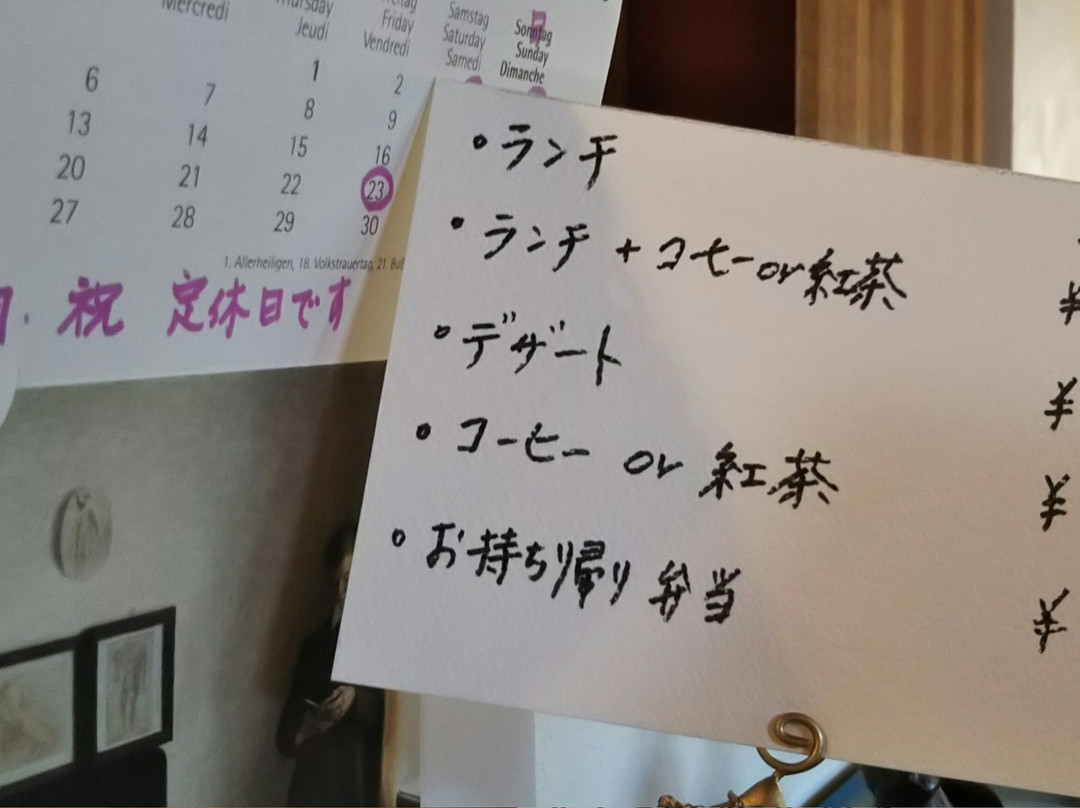 Mercredi
Jeudi
Friday
Vendredi
Samstag
Saturday
Samedi
Sonntag
Sunday
Dimanche
1 2
6 7 8 9
13 14 15 16
20 21 22 23
27 28 29 30
1. Allerheiligen, 18. Volkstrauertag, 21.
祝 定休日です
・ランチ
・ランチ + コーヒー or 紅茶 ¥
・デザート ¥
・コーヒー or 紅茶 ¥
・お持ち帰り 弁当 ¥